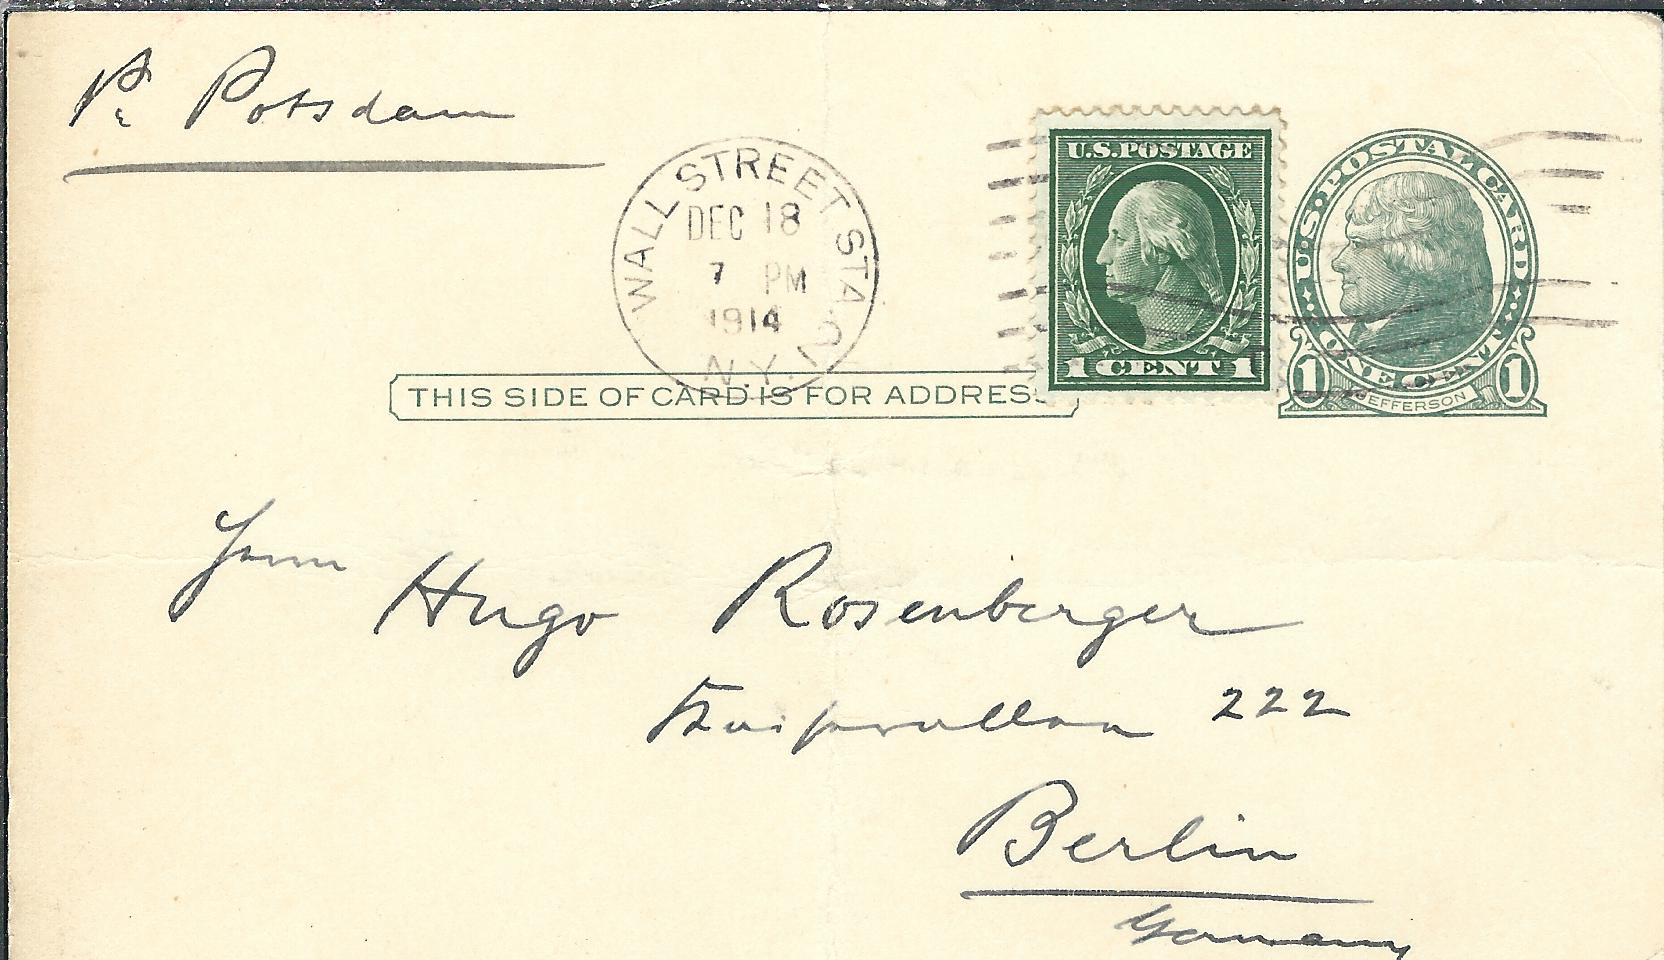 Pr Potsdam
WALL STREET STA.
DEC 18
7 PM
1914
N.Y.
U.S. POSTAGE
1 CENT 1
U.S. POSTAL CARD
ONE CENT
1 JEFFERSON 1
THIS SIDE OF CARD IS FOR ADDRESS
Herrn Hugo Rosenberger
Kaiserallee 222
Berlin
Germany